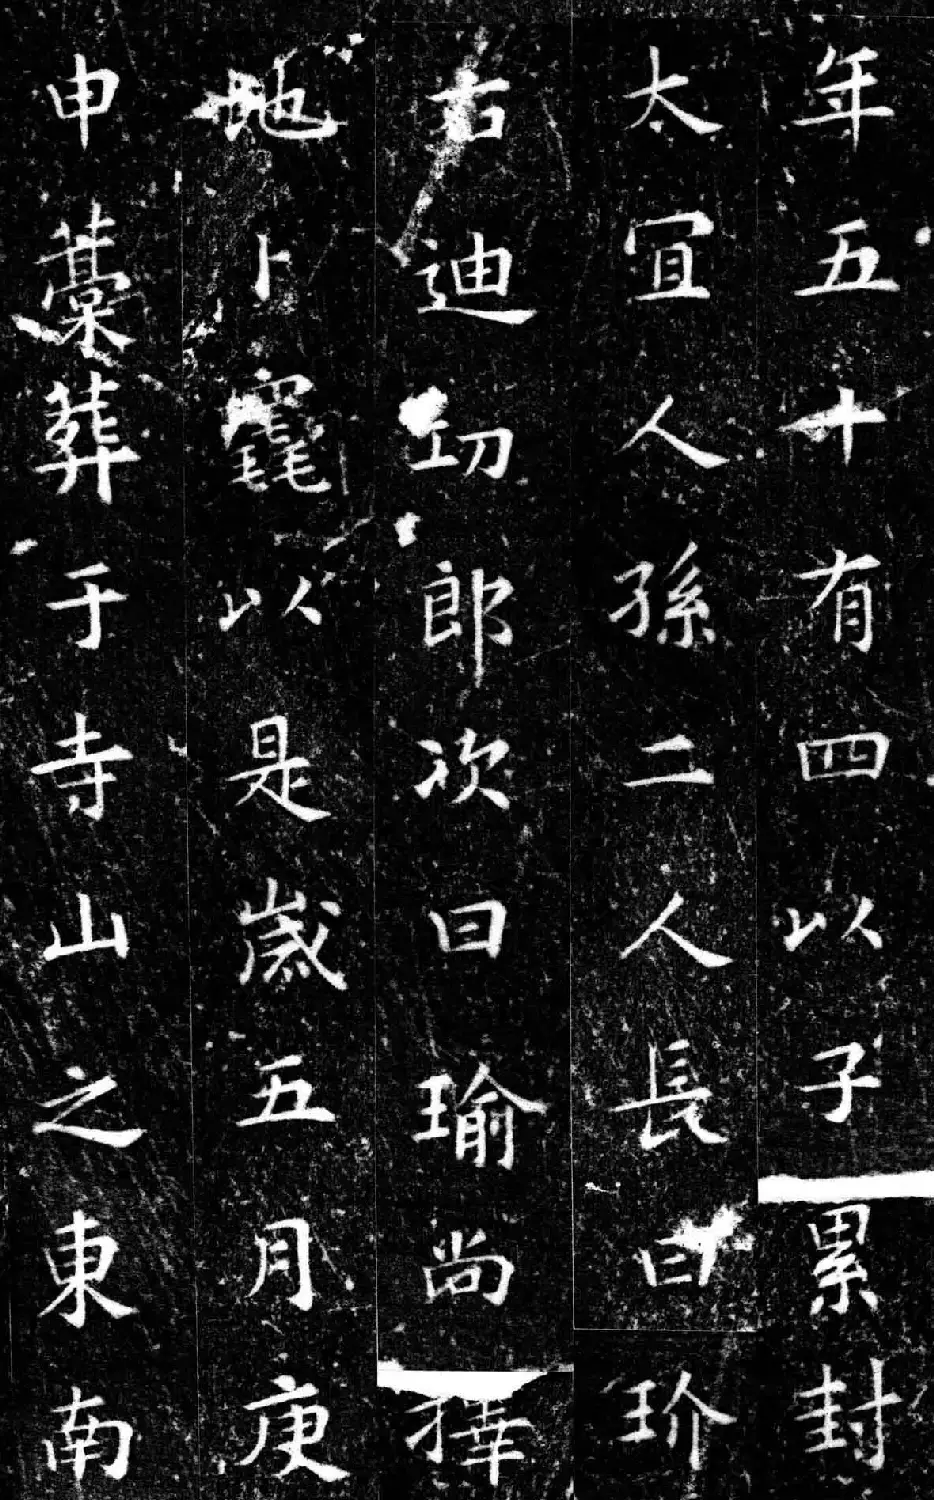 年五十有四以子累封
太宜人孫二人長曰玠
右迪功郎次曰瑜尚擇
地卜竁以是嵗五月庚
申藁葬于寺山之東南